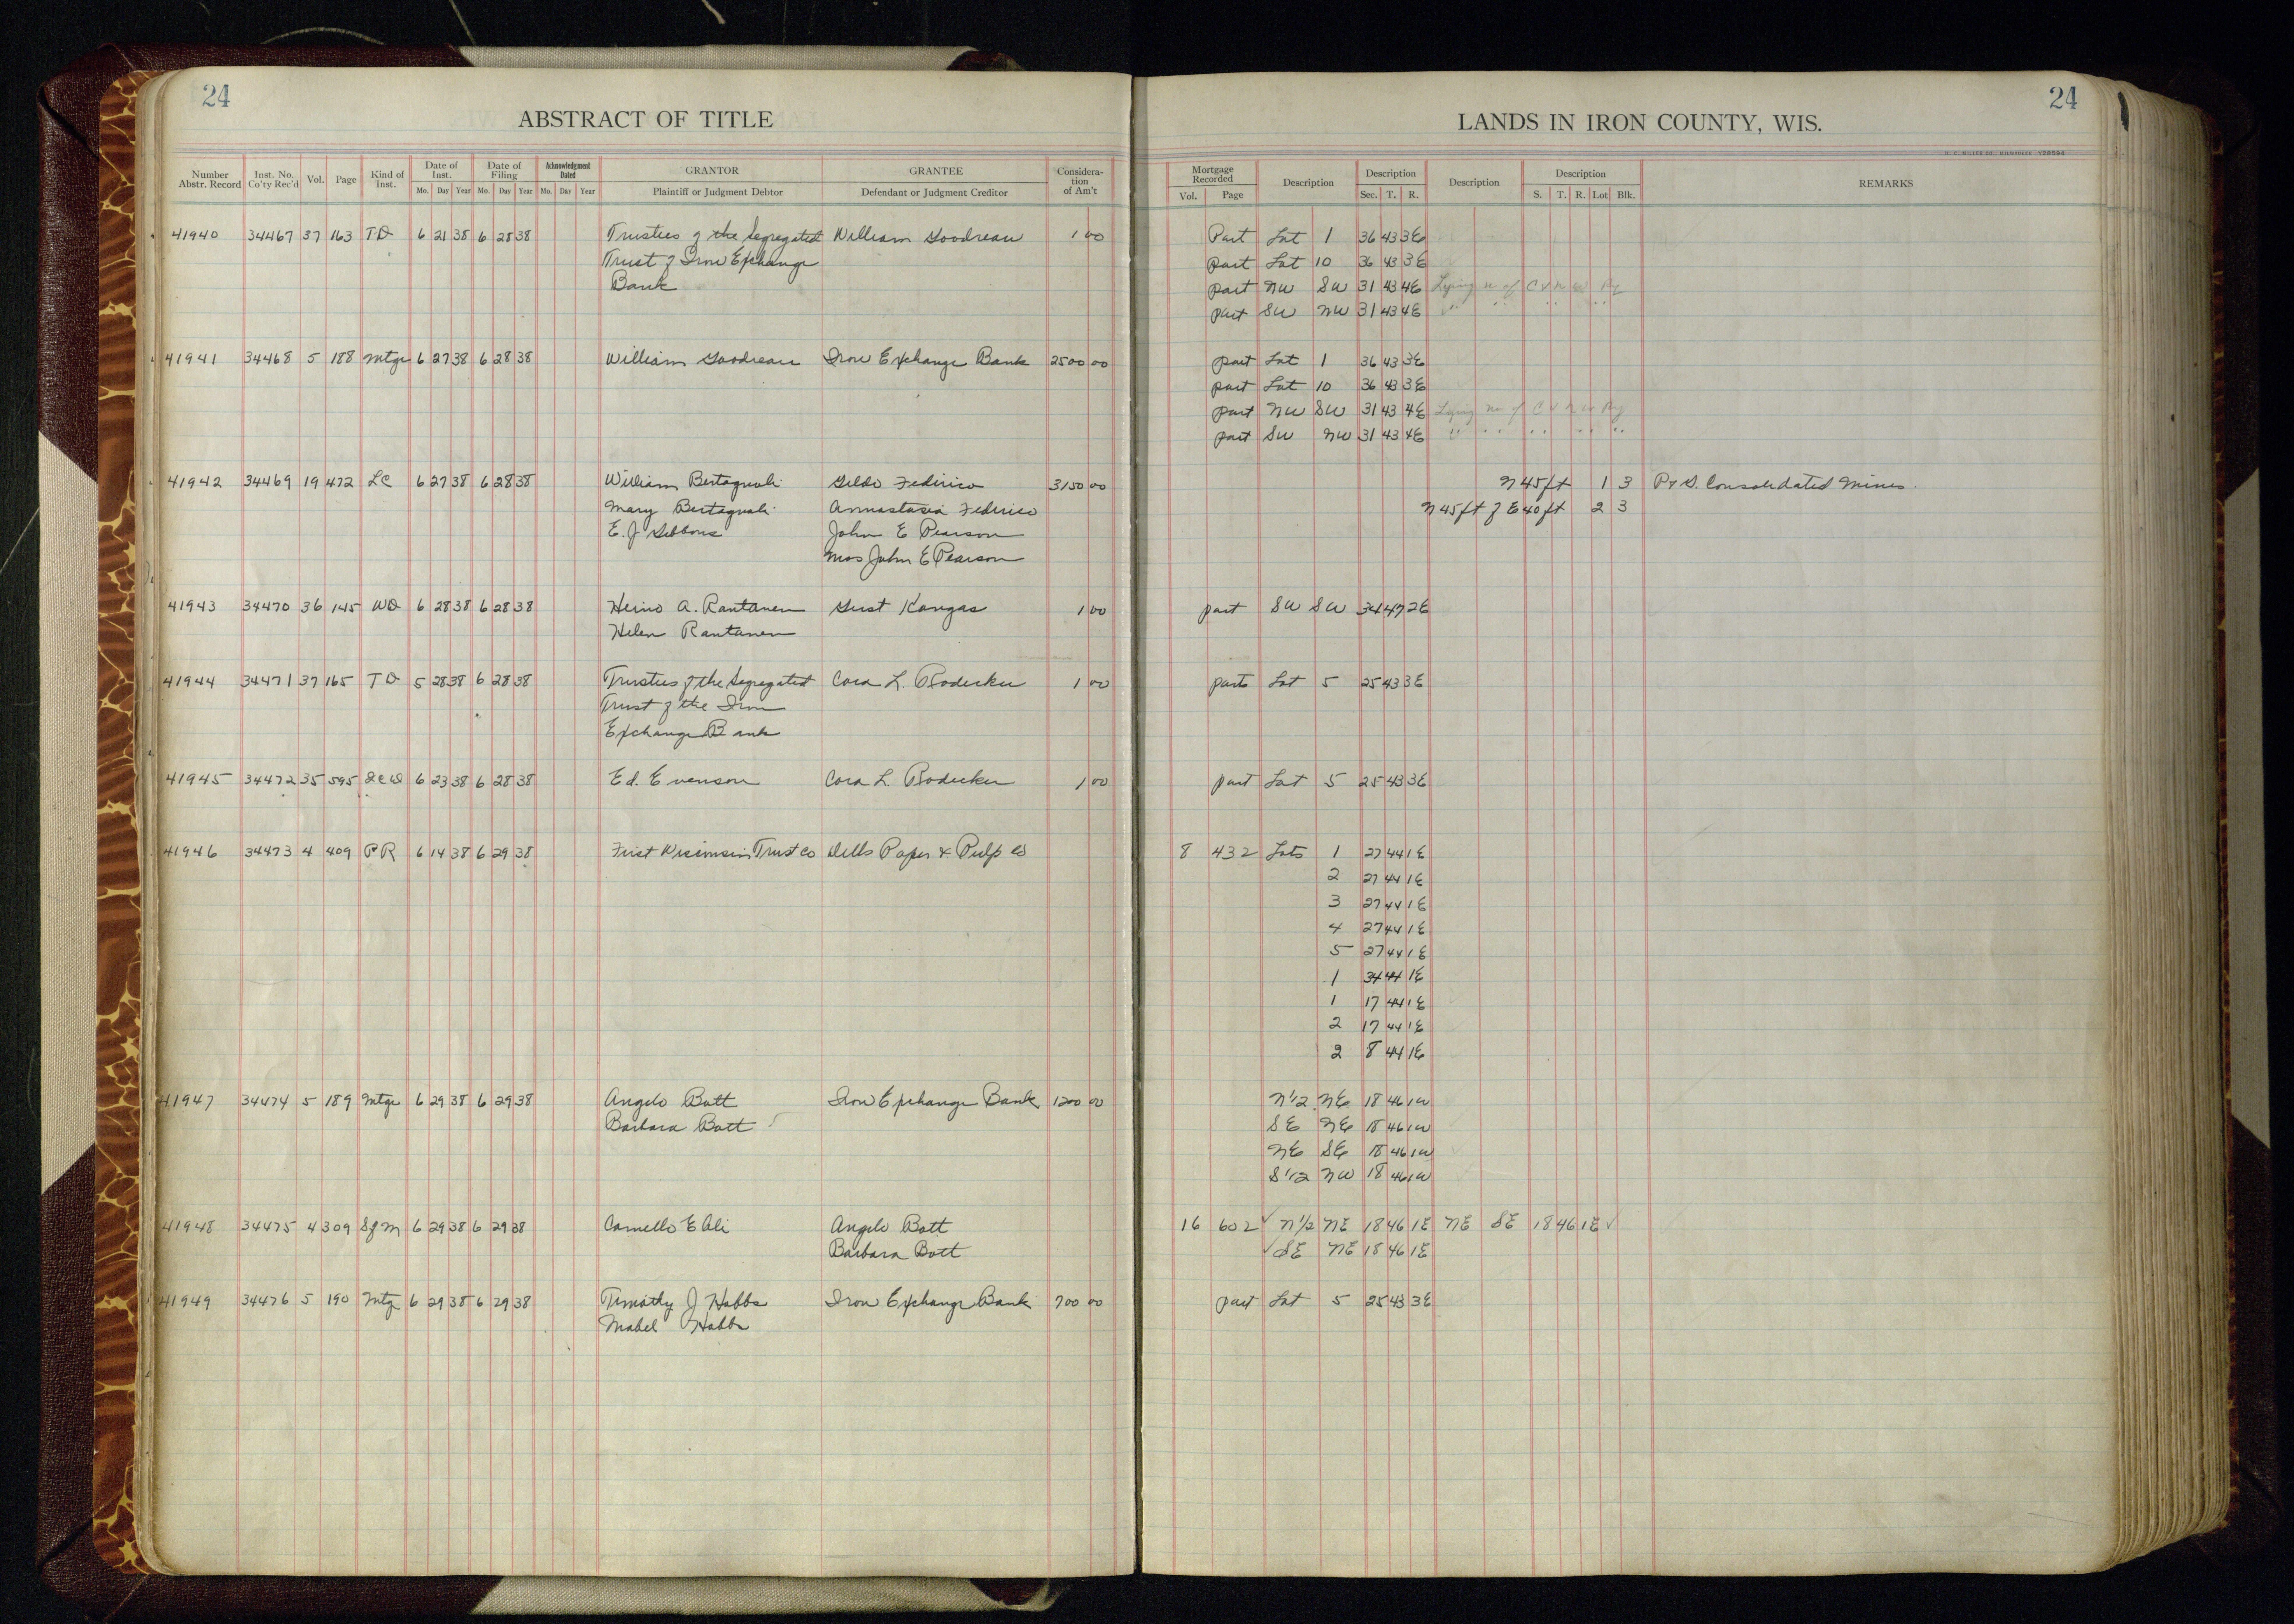 24
ABSTRACT OF TITLE
Number Abstr. Record | Inst. No. Co'ty Rec'd | Vol. | Page | Kind of Inst. | Date of Inst. Mo. Day Year | Date of Filing Mo. Day Year | Acknowledgment Dated Mo. Day Year | GRANTOR Plaintiff or Judgment Debtor | GRANTEE Defendant or Judgment Creditor | Consideration of Am't
24
LANDS IN IRON COUNTY, WIS.
Mortgage Recorded Vol. Page | Description | Description Sec. T. R. | Description | Description S. T. R. Lot Blk. | REMARKS
41940 34467 37 163 TD 6 21 38 6 28 38 Trustees of the Segregated William Goodreau 1 00 Part Lot 1 36 43 3E
Trust of Iron Exchange part Lot 10 36 43 3E
Bank part NW SW 31 43 4E Lying of C & N W Ry
part SW NW 31 43 4E " " " "
41941 34468 5 188 Mtge 6 27 38 6 28 38 William Goodreau Iron Exchange Bank 2500 00 part Lot 1 36 43 3E
part Lot 10 36 43 3E
part NW SW 31 43 4E Lying of C & N W Ry
part SW NW 31 43 4E " " " " " "
41942 34469 19 472 LC 6 27 38 6 28 38 William Bertagnoli Gildo Federico 3150 00 N 45 ft 1 3 P & S. Consolidated Mines.
Mary Bertagnoli Annastasia Federico N 45 ft of E 40 ft 2 3
E. J Gibbons John E Pearson
Mrs John E Pearson
41943 34470 36 145 WD 6 28 38 6 28 38 Heino A. Rantanen Gust Kangas 1 00 part SW SW 34 47 2E
Helen Rantanen
41944 34471 37 165 TD 5 28 38 6 28 38 Trustees of the Segregated Cora L. Rodecker 1 00 parts Lot 5 25 43 3E
Trust of the Iron
Exchange Bank
41945 34472 35 595 QCD 6 23 38 6 28 38 Ed. Evenson Cora L. Rodecker 1 00 part Lot 5 25 43 3E
41946 34473 4 409 PR 6 14 38 6 29 38 First Wisconsin Trust Co Dells Paper & Pulp Co 8 432 Lots 1 27 44 1E
2 27 44 1E
3 27 44 1E
4 27 44 1E
5 27 44 1E
1 34 44 1E
1 17 44 1E
2 17 44 1E
2 8 44 1E
41947 34474 5 189 Mtge 6 29 38 6 29 38 Angelo Bott Iron Exchange Bank 1200 00 N1/2 NE 18 46 1W
Barbara Bott SE NE 18 46 1W
NE SE 18 46 1W
S1/2 NW 18 46 1W
41948 34475 4 309 SfM 6 29 38 6 29 38 Camello Angelo Bott 16 602 ✓ N1/2 NE 18 46 1E NE SE 18 46 1E ✓
Barbara Bott ✓ SE NE 18 46 1E
41949 34476 5 190 Mtg 6 29 38 6 29 38 Timothy J Hobbs Iron Exchange Bank 700 00 part Lot 5 25 43 3E
Mabel Hobbs